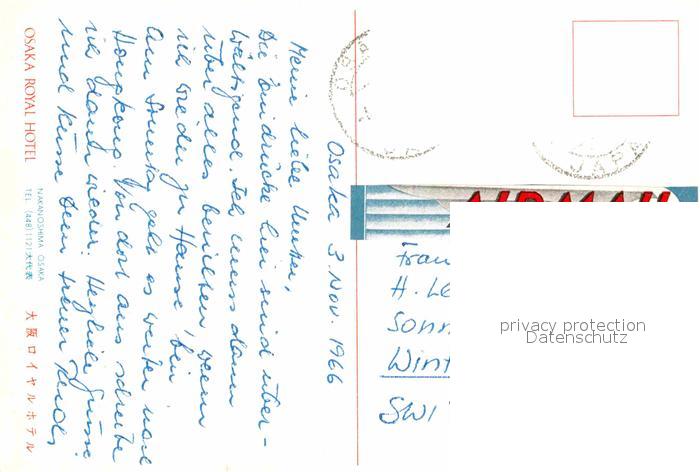 Osaka 3 Nov. 1966
Meine liebe Mutter,
Die Eindrücke hier sind über-
wältigend. Ich muss dann
über alles berichten wenn
ich wieder zu Hause bin.
Am Sonntag geht es weiter nach
Hongkong. Von dort aus schreibe
ich dann wieder. Herzliche Grüsse
und Küsse Dein treuer
OSAKA ROYAL HOTEL
NAKANOSHIMA OSAKA
TEL (448)1121大代表
大阪ロイヤルホテル
JAPAN
AIR MAIL
Frau
H. Le
Sonn
Wint
SWI
privacy protection
Datenschutz